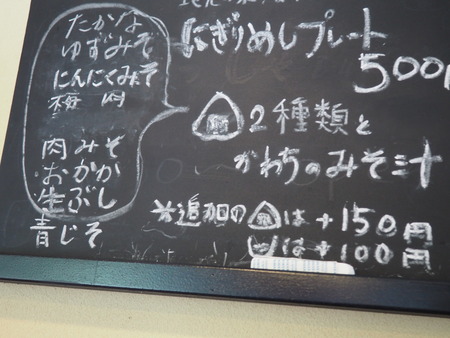 たかな
ゆずみそ
にんにくみそ
梅肉
肉みそ
おかか
生ぶし
青じそ
にぎりめしプレート
500
2種類と
かわちのみそ汁
※追加の は+150円
は+100円